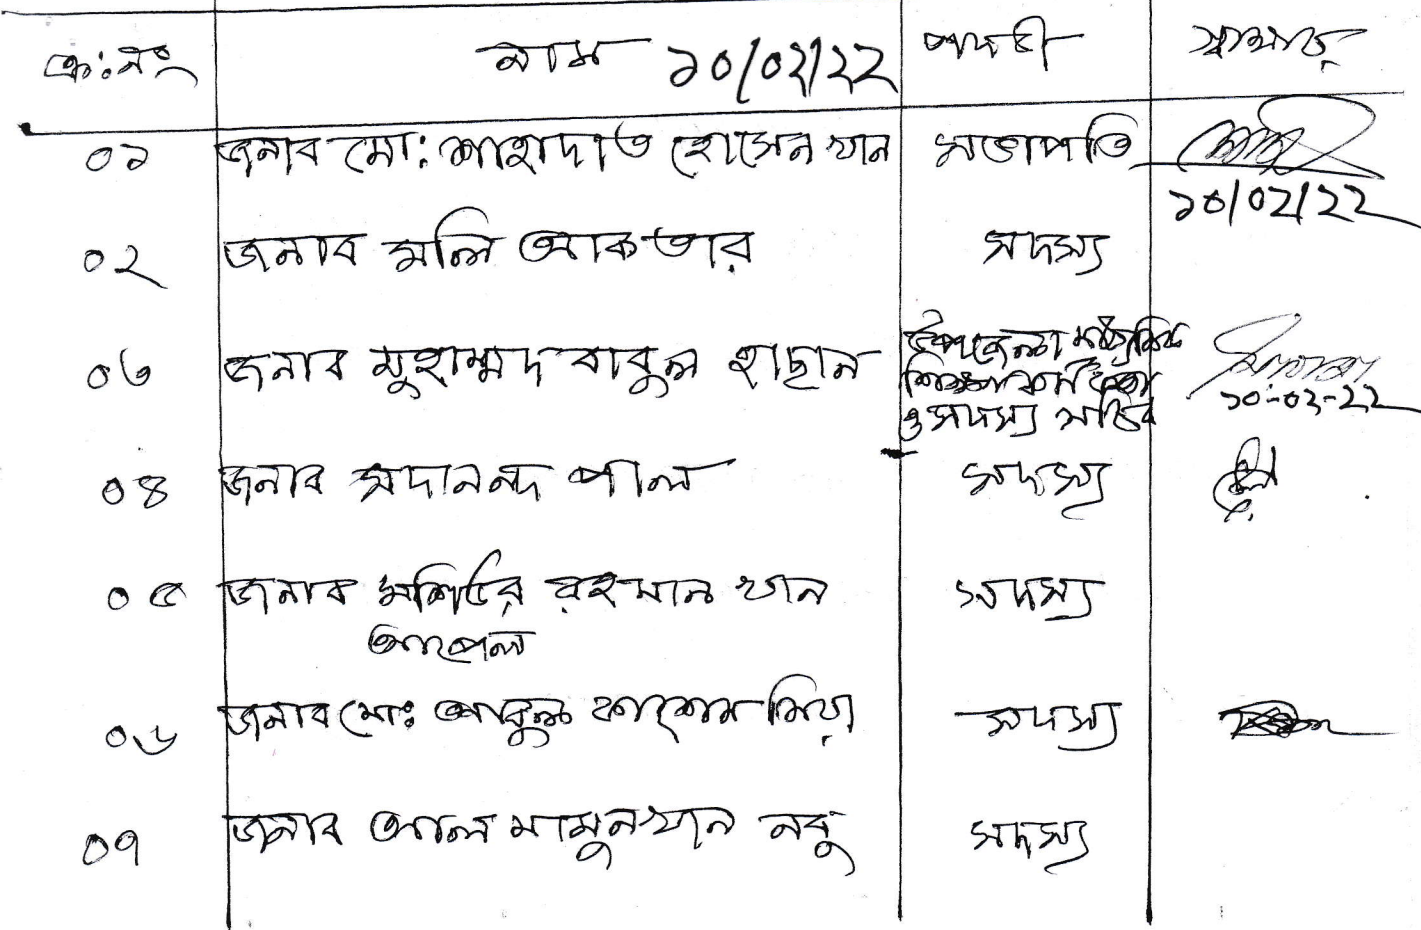 ক্র:নং নাম ১০/০২/২২ পদবী স্বাক্ষর
০১ জনাব মো: শাহাদাত হোসেন খান সভাপতি
১০/০২/২২
০২ জনাব মলি আকতার সদস্য
০৩ জনাব মুহাম্মদ বাবুল হাছান উপজেলা মাধ্যমিক
শিক্ষা কর্মকর্তা
ও সদস্য সচিব
১০-০২-২২
০৪ জনাব সদানন্দ পাল সদস্য
০৫ জনাব মশিউর রহমান খান সদস্য
আপেল
০৬ জনাব মো: আবুল কাশেম মিয়া সদস্য
০৭ জনাব আল মামুন খান নবু সদস্য